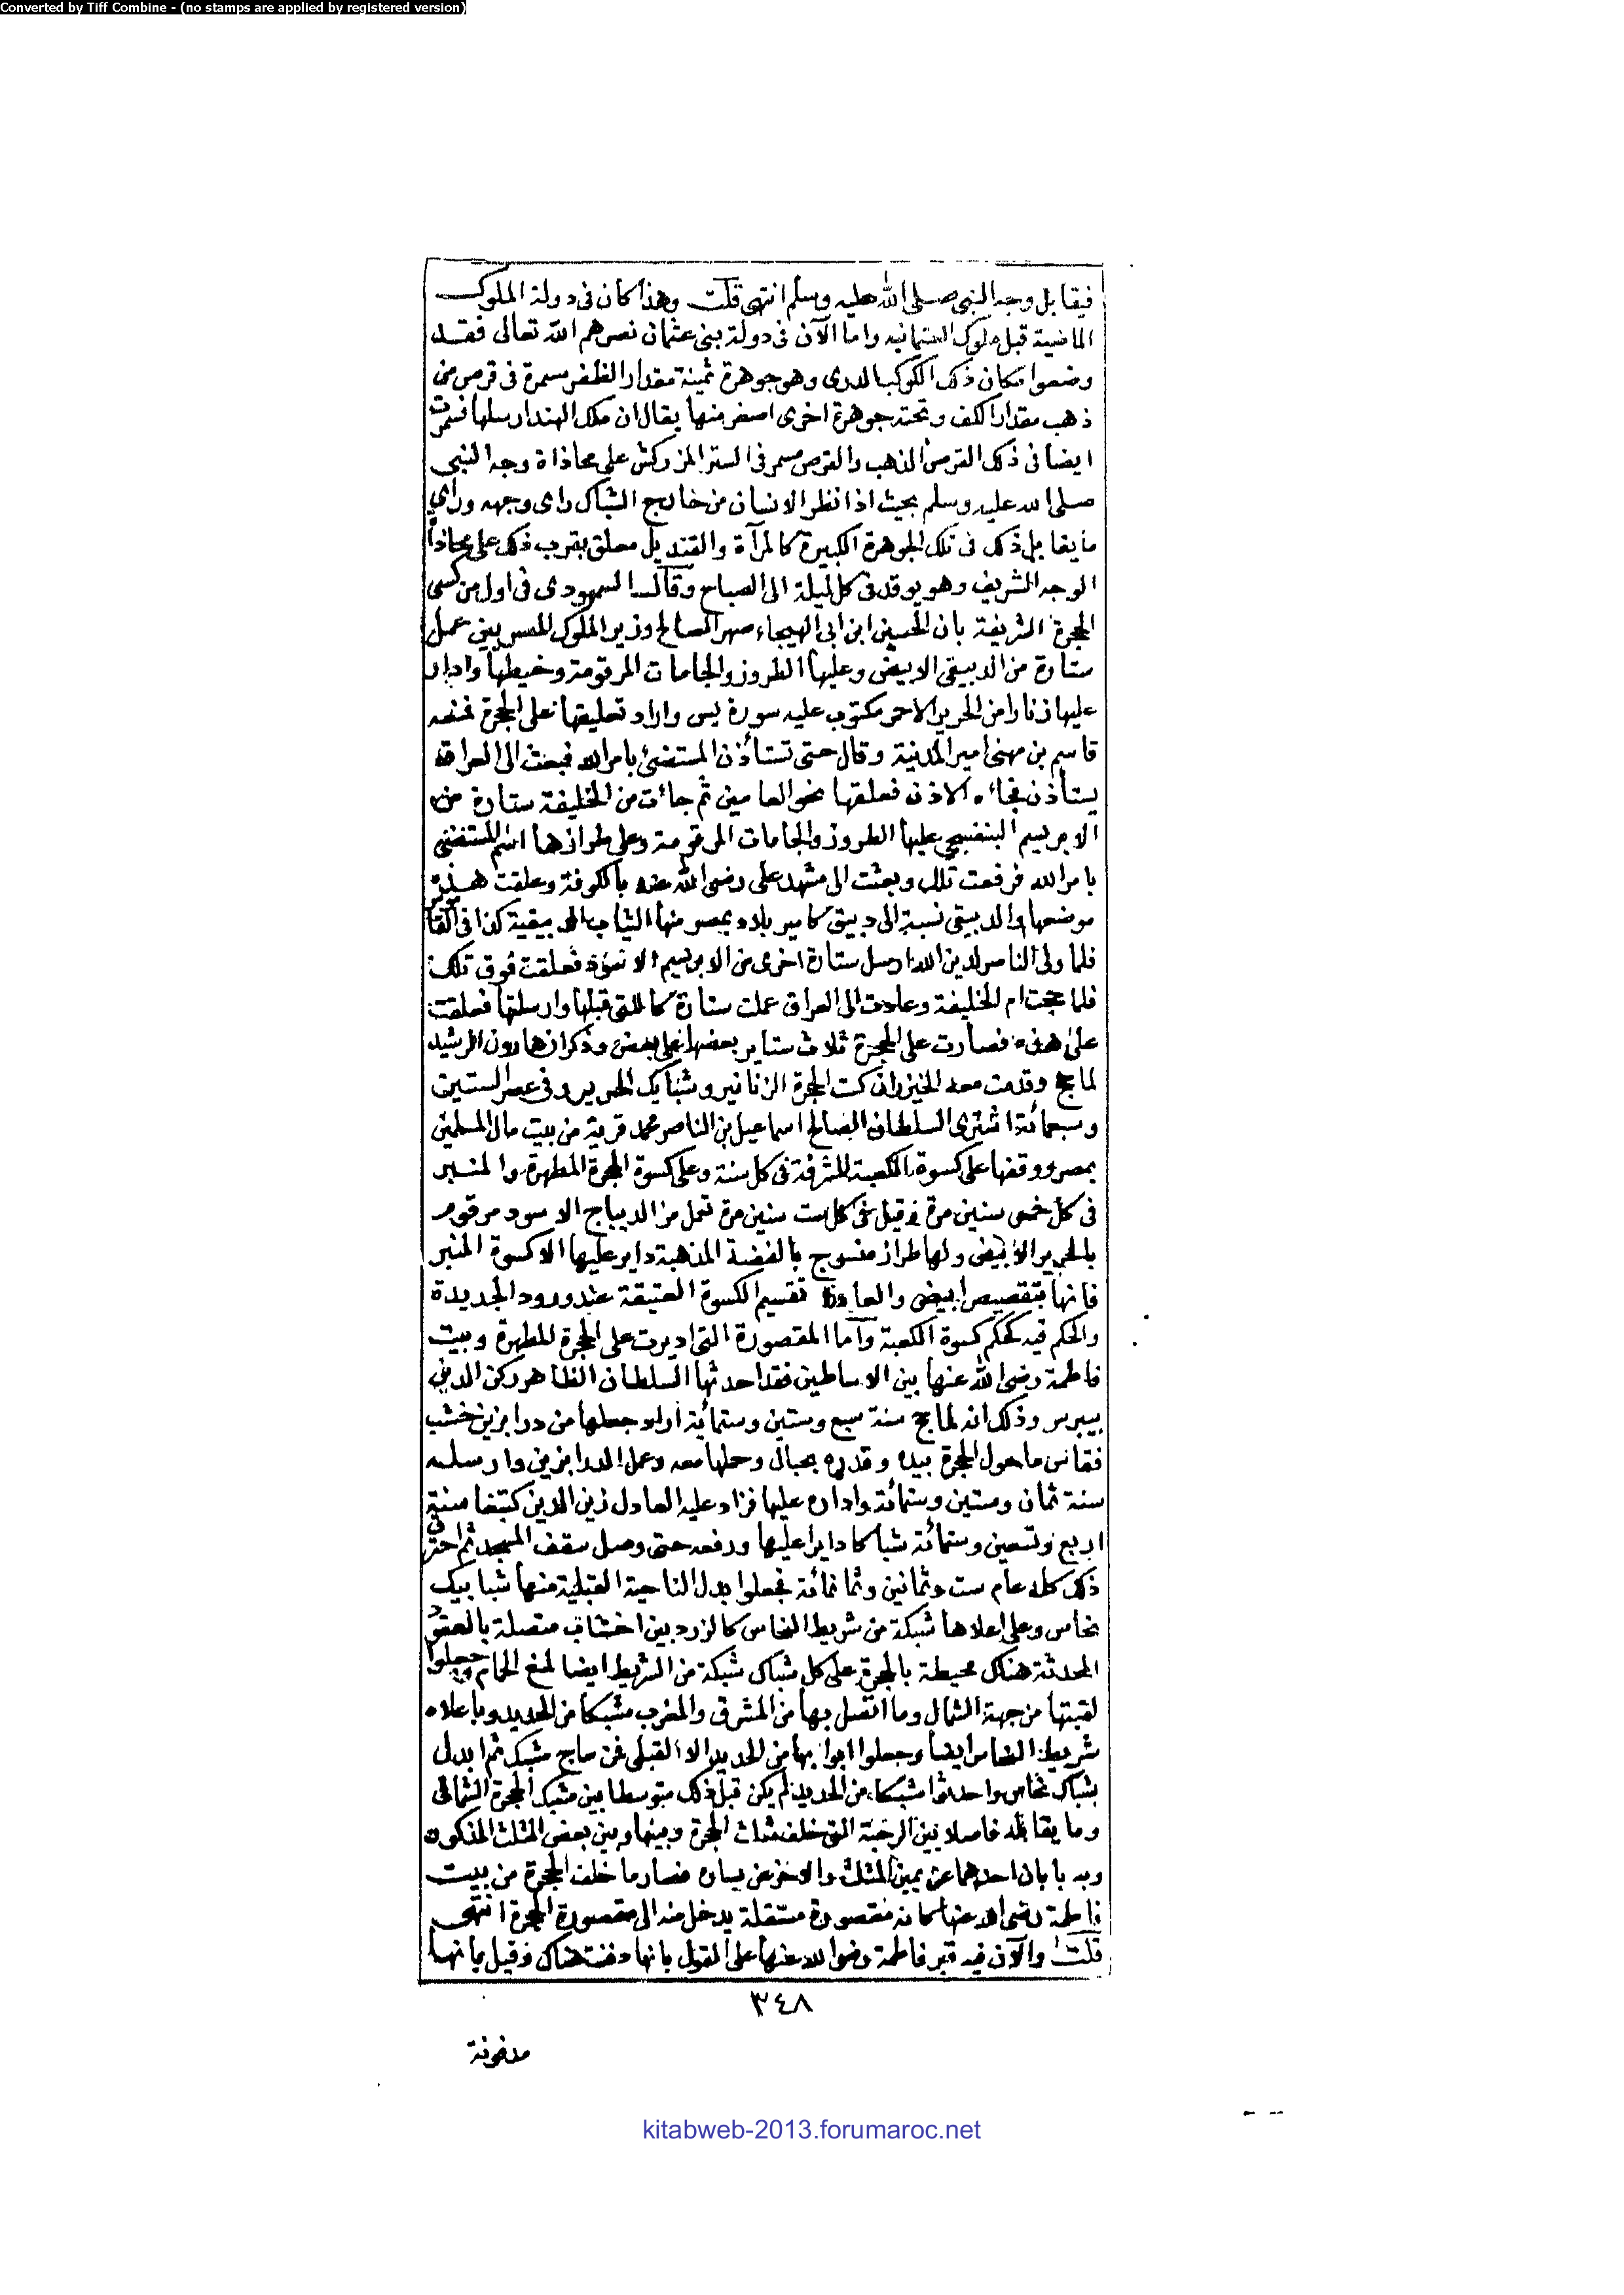 Converted by Tiff Combine - (no stamps are applied by registered version)
فيقابل وجه النبي صلى الله عليه وسلم انتهى قلت وهذا كان فى دولة الملوك
الماضية قبل ملوك العثمانيه واما الآن فى دولة بنى عثمان نصرهم الله تعالى فقد
وضعوا مكان ذلك الكوكب الدرى وهو جوهرة ثمينة مقدار الظفر مسمرة فى قرص من
ذهب مقدار الكف وتحته جوهرة اخرى اصغر منها يقال ان ملك الهند ارسلها فسمرت
ايضا فى ذلك القرص الذهب والقرص مسمر فى الستر المزركش على محاذاة وجه النبى
صلى الله عليه وسلم بحيث اذا نظر الانسان من خارج الشباك راى وجهه وراى
ما يقابل ذلك فى تلك الجوهرة الكبيرة كالمرآة والقنديل معلق بقرب ذلك على محاذاة
الوجه الشريف وهو يوقد فى كل ليلة الى الصباح وقال السمهودى فى اول من كسى
الحجرة الشريفة بان الحسين ابن ابى الهيجاء صهر الصالح وزير الملوك المصريين عمل
ستارة من الدبيقى الابيض وعليها الطروز والجامات المرقومة وخيطها وادار
عليها زنارا من الحرير الاحمر مكتوب عليه سورة يس واراد تعليقها على الحجرة فمنعه
قاسم بن مهنى امير المدينة وقال حتى تستأذن المستضئ بامر الله فبعث الى العراق
يستأذن فجاءه الاذن فعلقها نحو العامين ثم جاءت من الخليفة ستارة من
الابريسم البنفسجى عليها الطروز والجامات المرقومة وعلى طرازها اسم المستضئ
بامر الله فرفعت تلك وبعثت الى مشهد على رضى الله عنه بالكوفة وعلقت هذه
موضعها والدبيقى نسبة الى دبيق كامير بلده بمصر منها الثياب الدبيقية كذا فى القاموس
فلما ولى الناصر لدين الله ارسل ستارة اخرى من الابريسم الاسود فعلقت فوق تلك
فلما حجت ام الخليفة وعادت الى العراق عملت ستارة كالتى قبلها وارسلتها فعلقت
على هذه فصارت على الحجرة ثلاث ستاير بعضها على بعض وذكر ان هارون الرشيد
لما حج وقدمت معه الخيزران كست الحجرة الزنانير وشبايك الحرير وفى عصر الستين
وسبعمائة اشترى السلطان الصالح اسماعيل بن الناصر محمد قرية من بيت مال المسلمين
بمصر ووقفها على كسوة الكعبة المشرفة فى كل سنة وعلى كسوة الحجرة المطهرة والمنبر
فى كل خمس سنين مرة وقيل فى كل ست سنين مرة تعمل من الديباج الاسود مرقوم
بالحرير الابيض ولها طراز منسوج بالفضة المذهبة داير عليها الا كسوة المنبر
فانها بتقصيص ابيض والعادة تقسيم الكسوة العتيقة عند ورود الجديدة
والحكم فيه كحكم كسوة الكعبة وآما المقصورة التى اديرت على الحجرة المطهرة وبيت
فاطمة رضى الله عنها بين الاساطين فقد احدثها السلطان الظاهر ركن الدين
بيبرس وذلك انه لما حج سنة سبع وستين وستمائة اراد جعلها من درابزين خشب
فقاس ما حول الحجرة بيده وقدره بحبال وحملها معه وعمل الدرابزين وارسله
سنة ثمان وستين وستمائة واداره عليها فزاد عليه العادل زين الدين كتبغا سنة
اربع وتسعين وستمائة شباكا دايرا عليها ورفعه حتى وصل سقف المسجد ثم احترق
ذلك كله عام ست وثمانين وثمانمائة فجعلوا بدل الناحية القبلية منها شبابيك
نحاس وعلى اعلاها شبكة من شريط النحاس كالزرد بين اخشاب متصلة بالعقود
المحدثة هناك محيطة بالحجرة على كل شباك شبكة من الشريط ايضا لمنع الحمام وجعلوا
لقبتها من جهة الشمال وما اتصل بها من المشرق والمغرب مشبكا من الحديد وباعلاه
شريط النحاس ايضا وجعلوا ابوابها من الحديد الا القبلى فمن ساج مشبك ثم ابدل
بشباك نحاس واحدثوا مشبكا من الحديد لم يكن قبل ذلك متوسطا بين مشبك الحجرة الشمالى
وما يقابله فاصلا بين الرحبة التى خلف مثلث الحجرة وبينها وبين بعض المثلث المذكور
وبه بابان احدهما عن يمين المثلث والاخر عن يساره فصار ما خلف الحجرة من بيت
فاطمة رضى الله عنها كانه مقصورة مستقلة يدخل منه الى مقصورة الحجرة انتهى
قلت والآن فيه قبر فاطمة رضى الله عنها على القول بانها دفنت هناك وقيل بانها
٣٤٨
مدفونة
kitabweb-2013.forumaroc.net